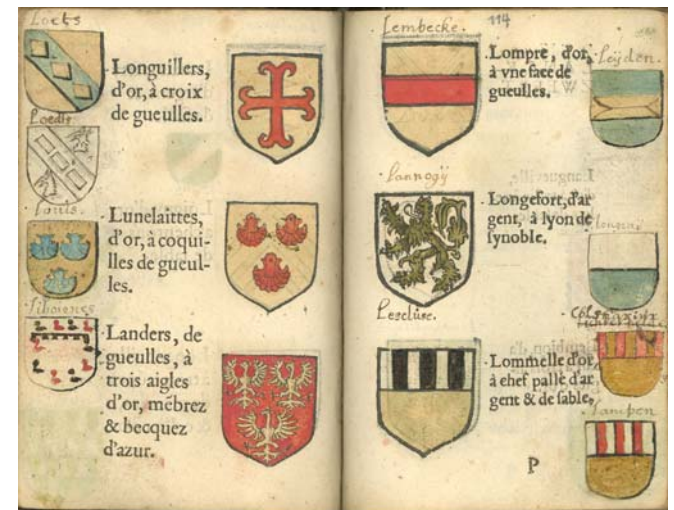 Loets
Longuillers,
d'or, à croix
de gueulles.
Lunelaittes,
d'or, à coqui-
lles de gueul-
les.
Landers, de
gueulles, à
trois aigles
d'or, mébrez
& becquez
d'azur.
Lembecke.
114
Lompre, d'or,
à vne face de
gueulles.
Leÿden.
Lannoÿ
Longefort, d'ar
gent, à lyon de
synoble.
Lescluse.
Lommelle d'or
à chef pallé d'ar
gent & de sable,
P